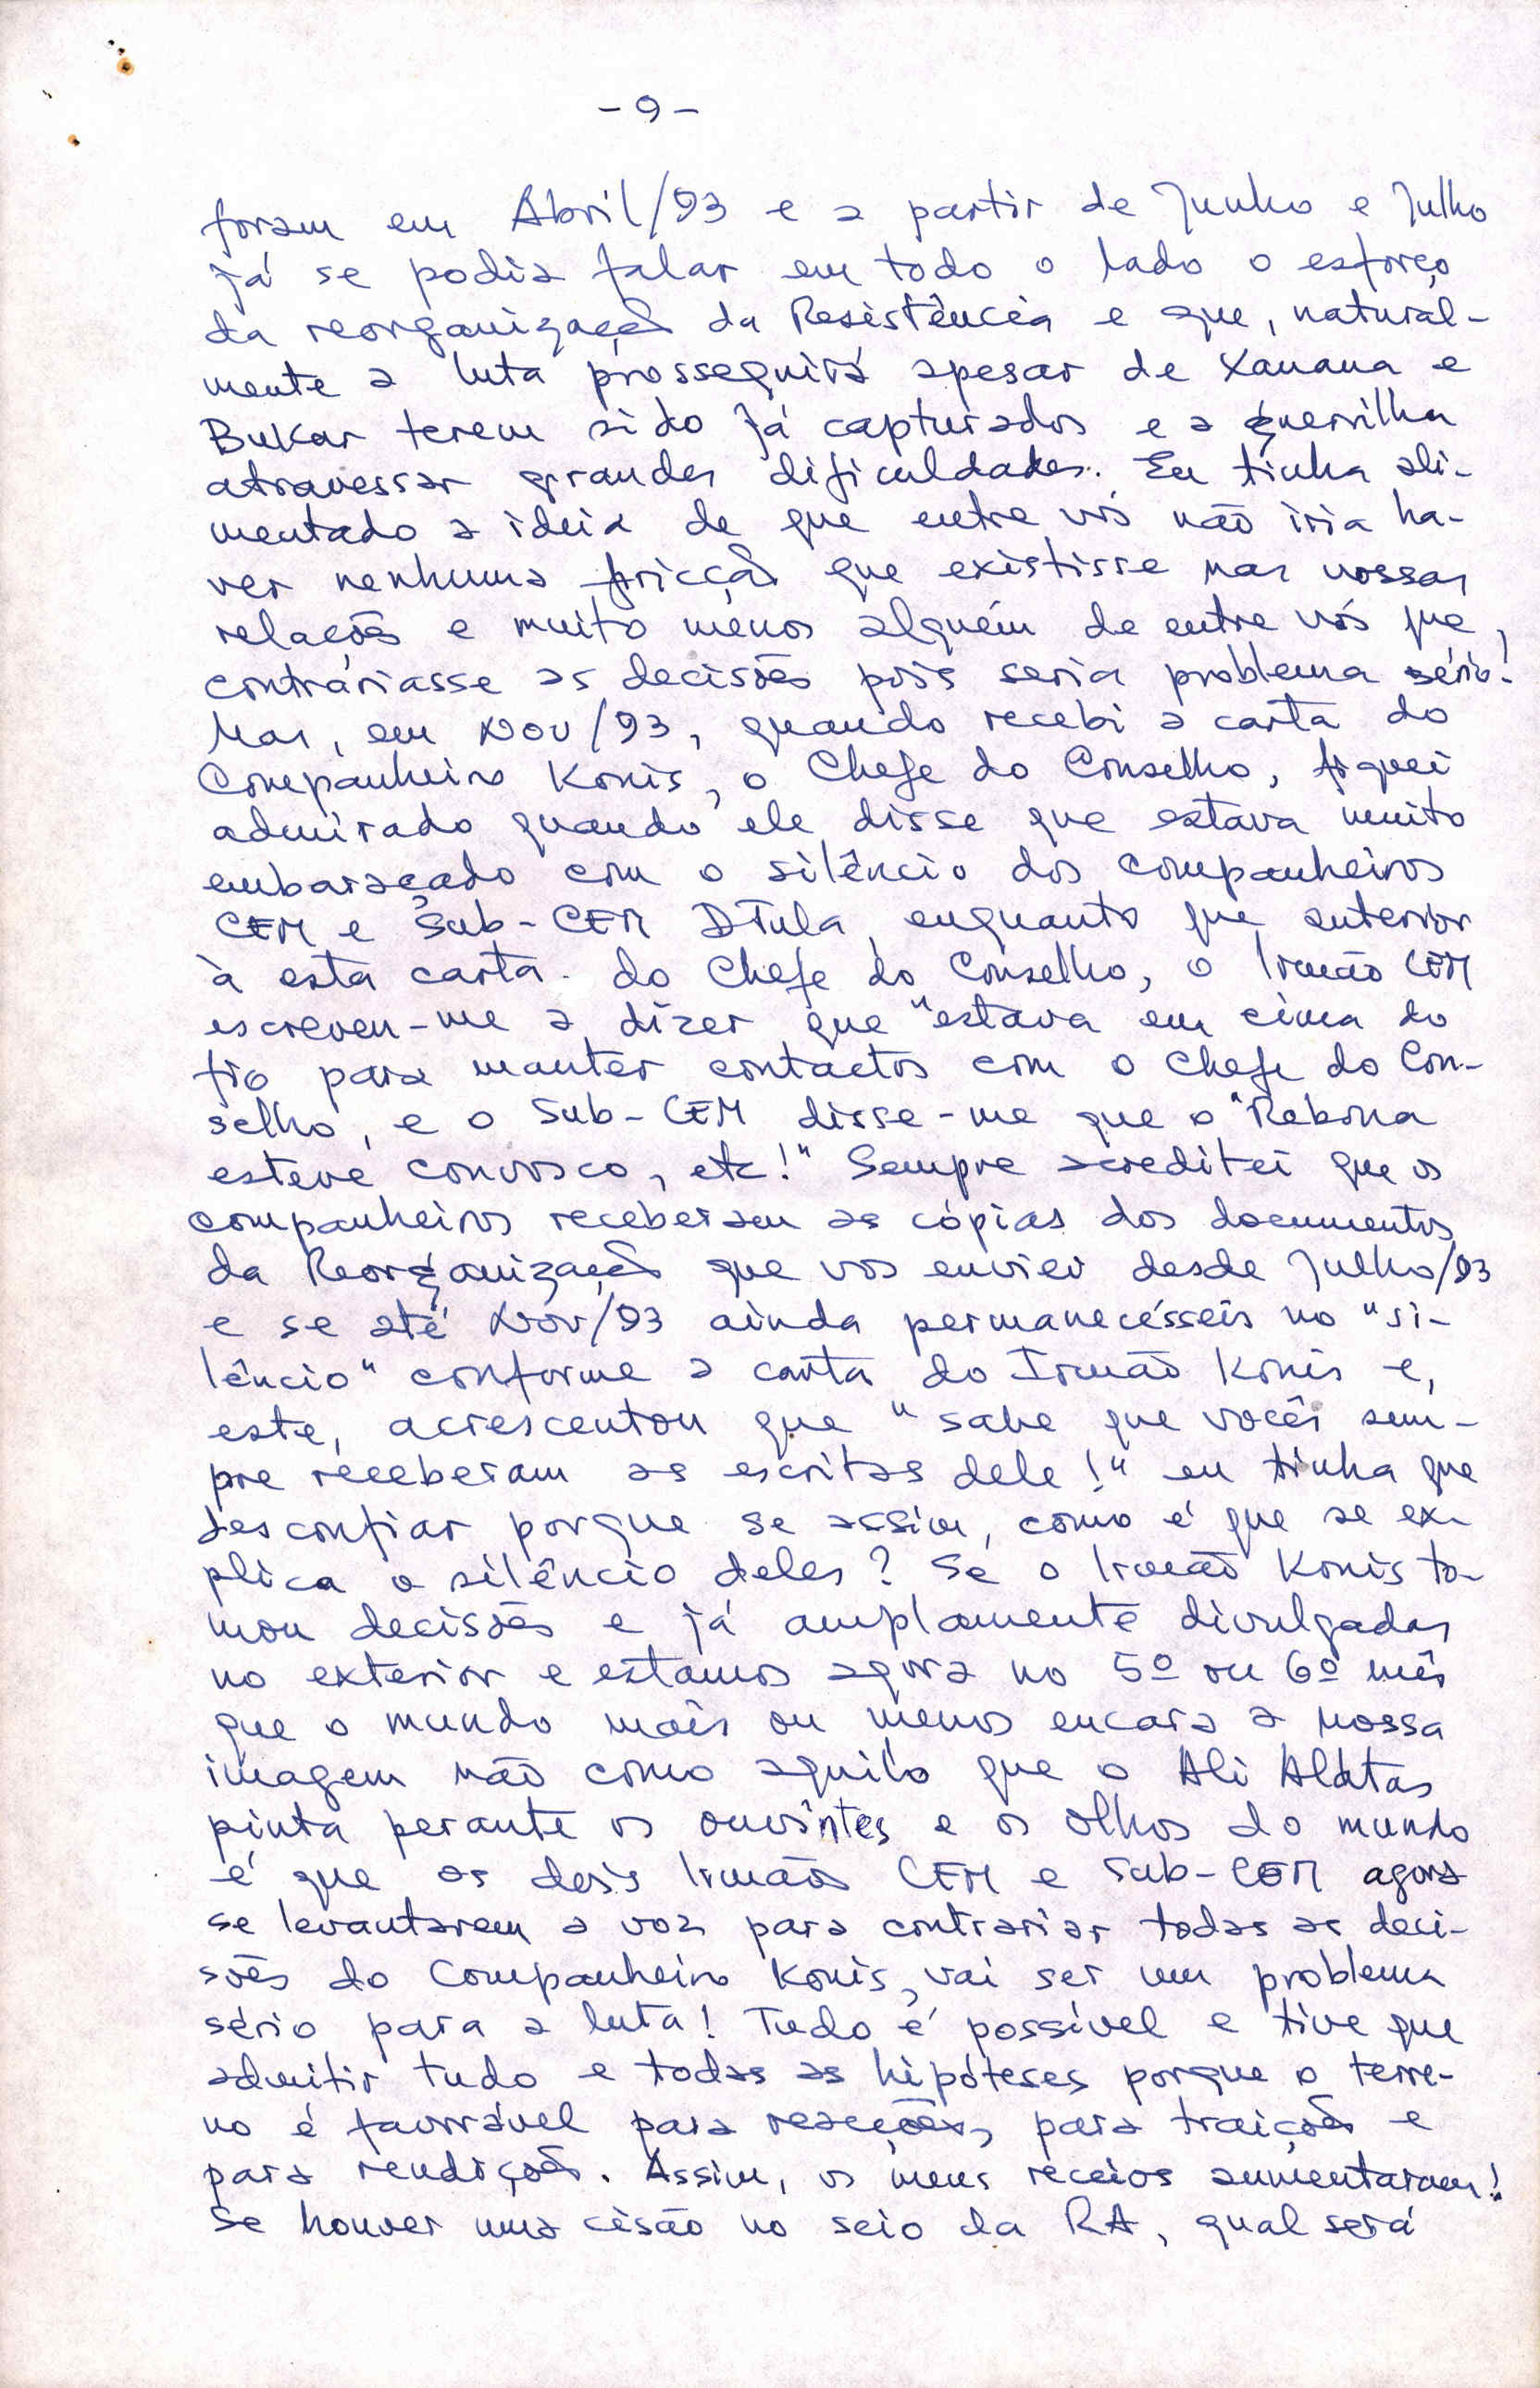 - 9 -
foram em Abril/93 e a partir de Junho e Julho
já se podia falar em todo o lado o esforço
da reorganização da Resistência e que, natural-
mente a luta prosseguirá apesar de Xanana e
Bukar terem sido já capturados e a guerrilha
atravessar grandes dificuldades. Eu tinha ali-
mentado a ideia de que entre vós não iria ha-
ver nenhuma fricção que existisse nas vossas
relações e muito menos alguém de entre vós que,
contrariasse as decisões pois seria problema sério!
Mas, em Nov/93, quando recebi a carta do
Companheiro Konis, o Chefe do Conselho, fiquei
admirado quando ele disse que estava muito
embaraçado com o silêncio dos companheiros
CEM e Sub-CEM DTula, enquanto que anterior
à esta carta do Chefe do Conselho, o Irmão CEM
escreveu-me a dizer que "estava em cima do
fio para manter contactos com o Chefe do Con-
selho, e o Sub-CEM disse-me que o "Rebona
esteve convosco, etc!" Sempre acreditei que os
companheiros receberam as cópias dos documentos
da Reorganização que vos enviei desde Julho/93
e se até Nov/93 ainda permanecésseis no "si-
lêncio" conforme a carta do Irmão Konis e,
este, acrescentou que "sabe que vocês sem-
pre receberam as escritas dele!" eu tinha que
desconfiar porque se assim, como é que se ex-
plica o silêncio deles? Se o Irmão Konis to-
mou decisões e já amplamente divulgadas
no exterior e estamos agora no 5º ou 6º mês
que o mundo mais ou menos encara a nossa
imagem não como aquilo que o Ali Alatas
pinta perante os ouvintes e os olhos do mundo
é que os dois Irmãos CEM e Sub-CEM agora
se levantarem a voz para contrariar todas as deci-
sões do Companheiro Konis, vai ser um problema
sério para a luta! Tudo é possível e tive que
admitir tudo e todas as hipóteses porque o terre-
no é favorável para reacções, para traições e
para rendições. Assim, os meus receios aumentaram!
Se houver uma cisão no seio da RA, qual será